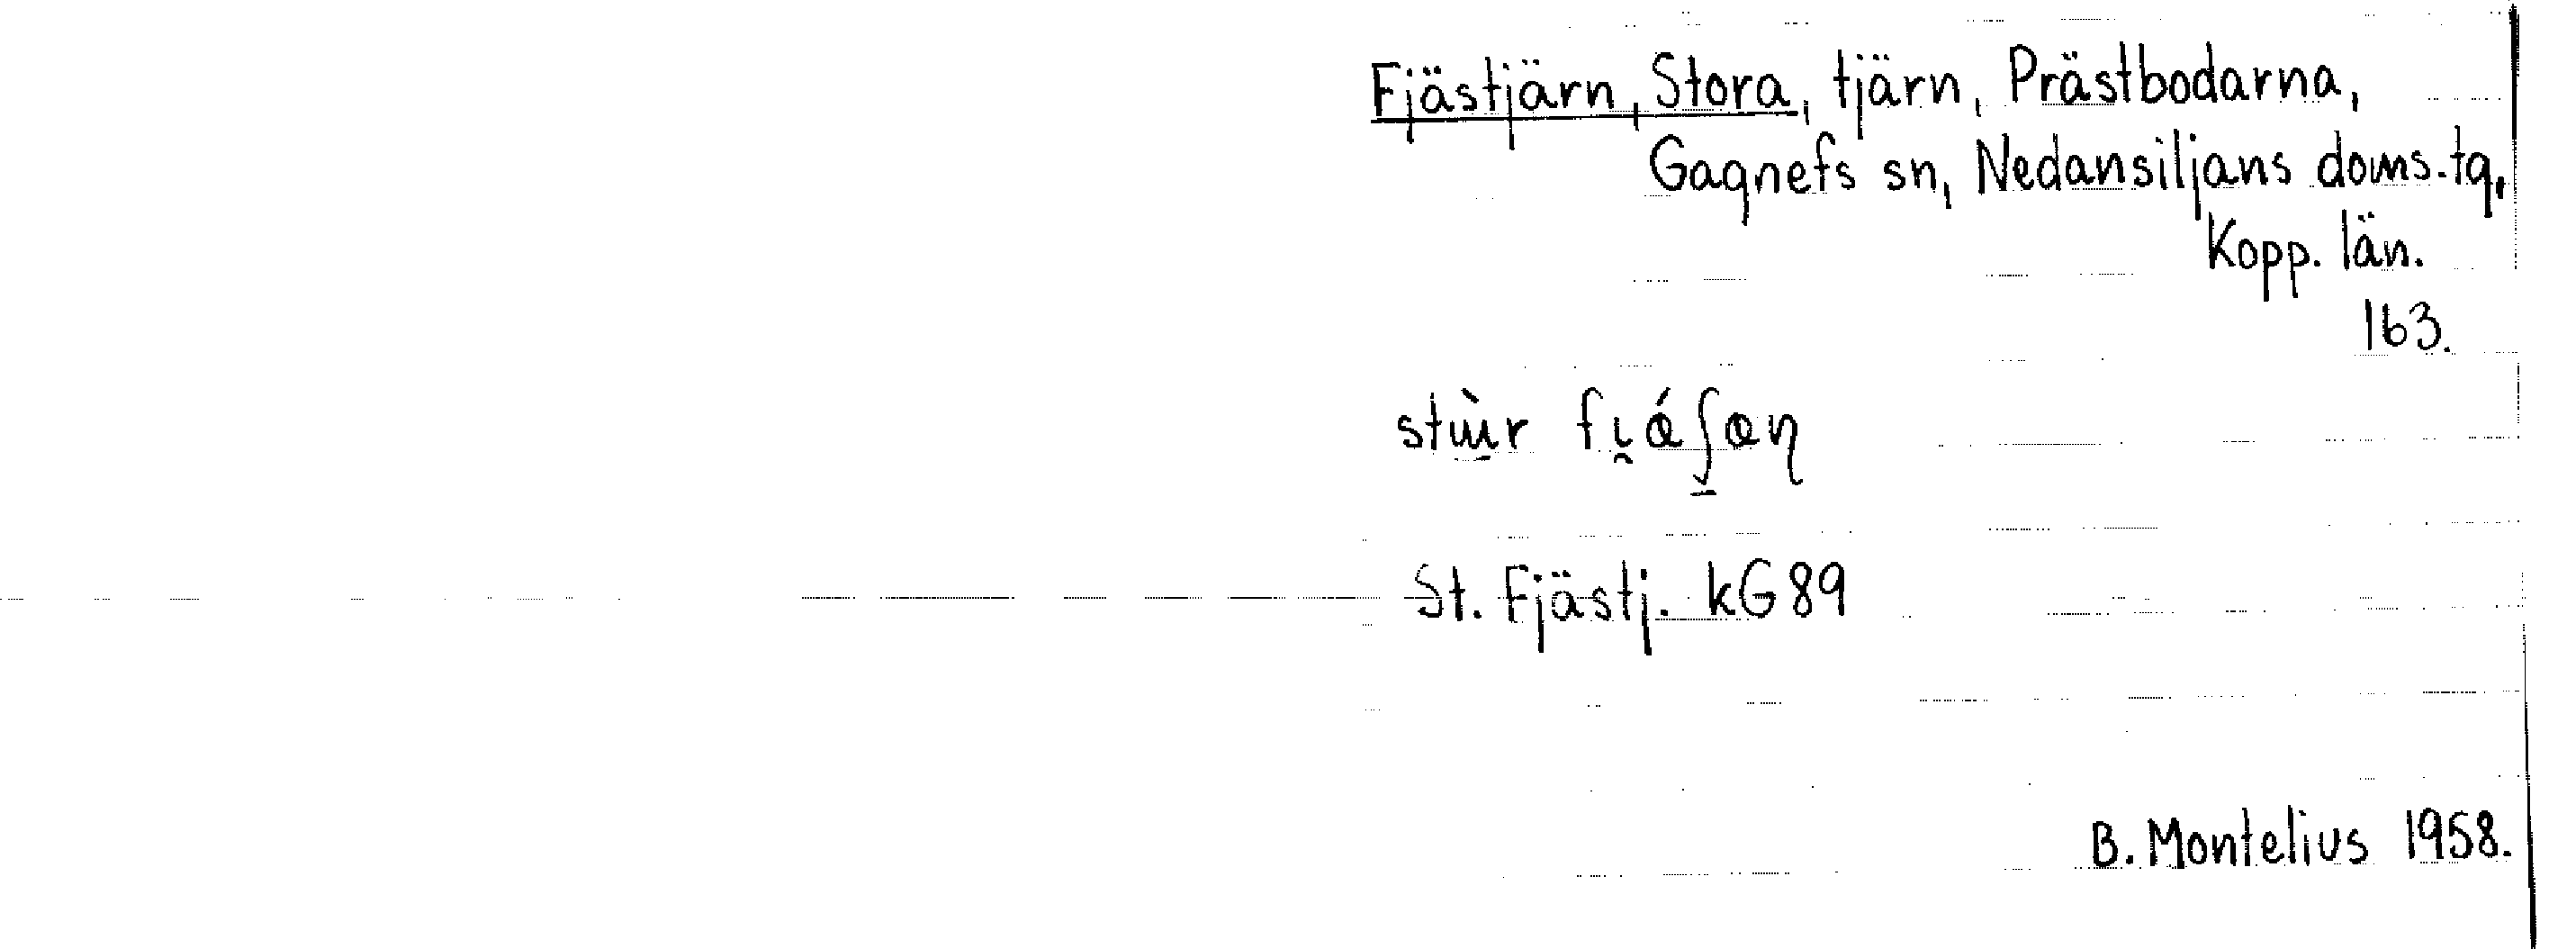 Fjästjärn, Stora, tjärn, Prästbodarna,
Gagnefs sn, Nedansiljans doms.tg,
Kopp. län.
163.
St. Fjästj. kG89
B. Montelius 1958.